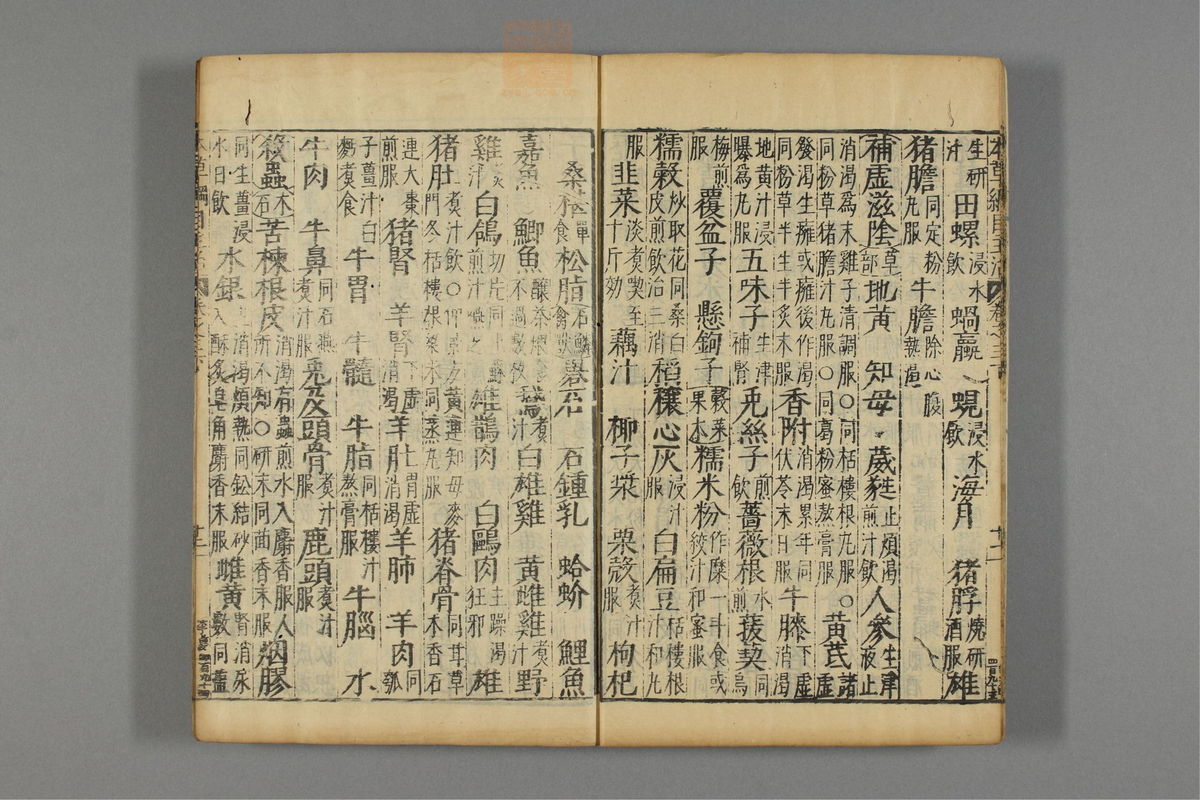 生研汁田螺浸水飲蝸蠃 蜆浸水飲海月 猪脬燒研酒服雄
猪膽同定粉丸服牛膽除心腹熱渴
補虛滋陰草部地黃 知母 葳蕤止煩渴煎汁飲人參生津液止
消渴爲末雞子清調服○同栝樓根丸服○同粉草猪膽汁丸服○同葛粉蜜熬膏服黃芪諸虛
發渴生癰或癰後作渴同粉草半生半炙末服香附消渴累年同伏苓末日服牛膝下虛消渴
地黃汁浸曝爲丸服五味子生津補腎兎絲子煎飲薔薇根水煎菝葜同烏
梅煎服覆盆子 懸鉤子穀菜果木糯米粉作糜一斗食或絞汁和蜜服
糯穀炒取花同桑白皮煎飲治三消稻穰心灰浸汁服白扁豆栝樓根汁和丸
服韭菜淡煮喫至十斤効藕汁 椰子漿 栗殼煮汁服枸杞
桑椹單食松脂石鱗禽獸礜石 石鍾乳 蛤蚧 鯉魚
嘉魚 鯽魚釀茶煨食不過數枚鵞煮汁白雄雞 黃雌雞煮汁野
雞煮汁白鴿切片同土蘇煎汁嚥之雄鵲肉 白鷗肉主躁渴狂邪雄
猪肚煮汁飲○仲景方黃連知母麥門冬栝樓根粱米同蒸丸服猪脊骨同甘草木香石
連大棗煎服猪腎 羊腎下虛消渴羊肚胃虛消渴羊肺 羊肉同瓠
子薑汁白麪煮食牛胃 牛髓 牛脂同栝樓汁熬膏服牛腦 水
牛肉 牛鼻同石燕煮汁服兎及頭骨煮汁服鹿頭煮汁服
殺蟲木石苦楝根皮消渴有蟲煎水入麝香服人所不知○研末同茴香末服烟膠
同生薑浸水日飲水銀主消渴煩熱同鉛結砂入酥炙皂角麝香末服雌黃腎消尿數同鹽